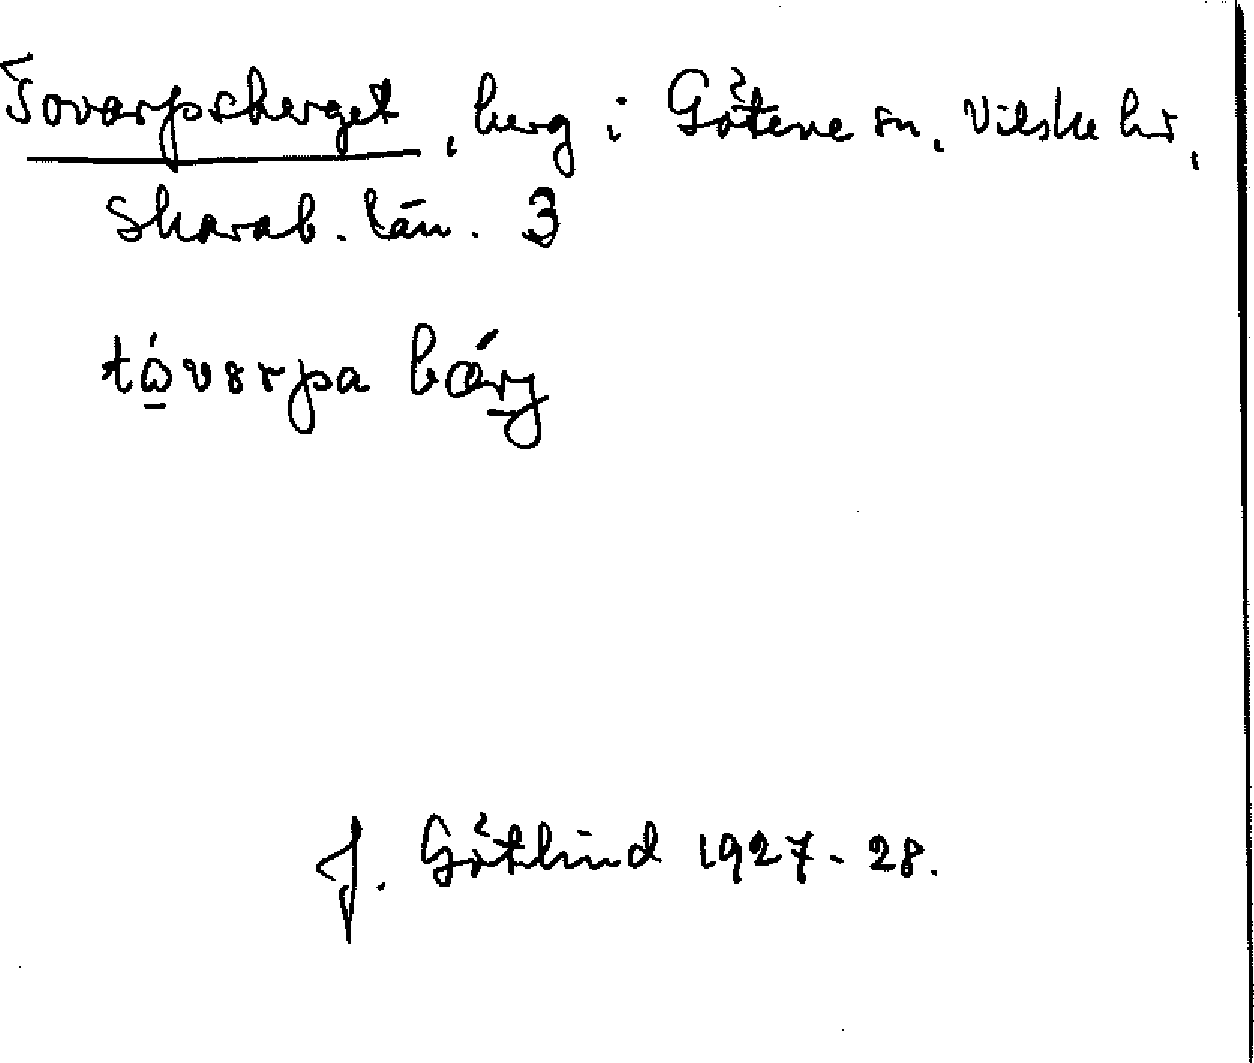 Tovarpsberget, berg i Götene sn, Vilske hd,
Skarab. län. 3
bärj
J. Götlind 1927-28.